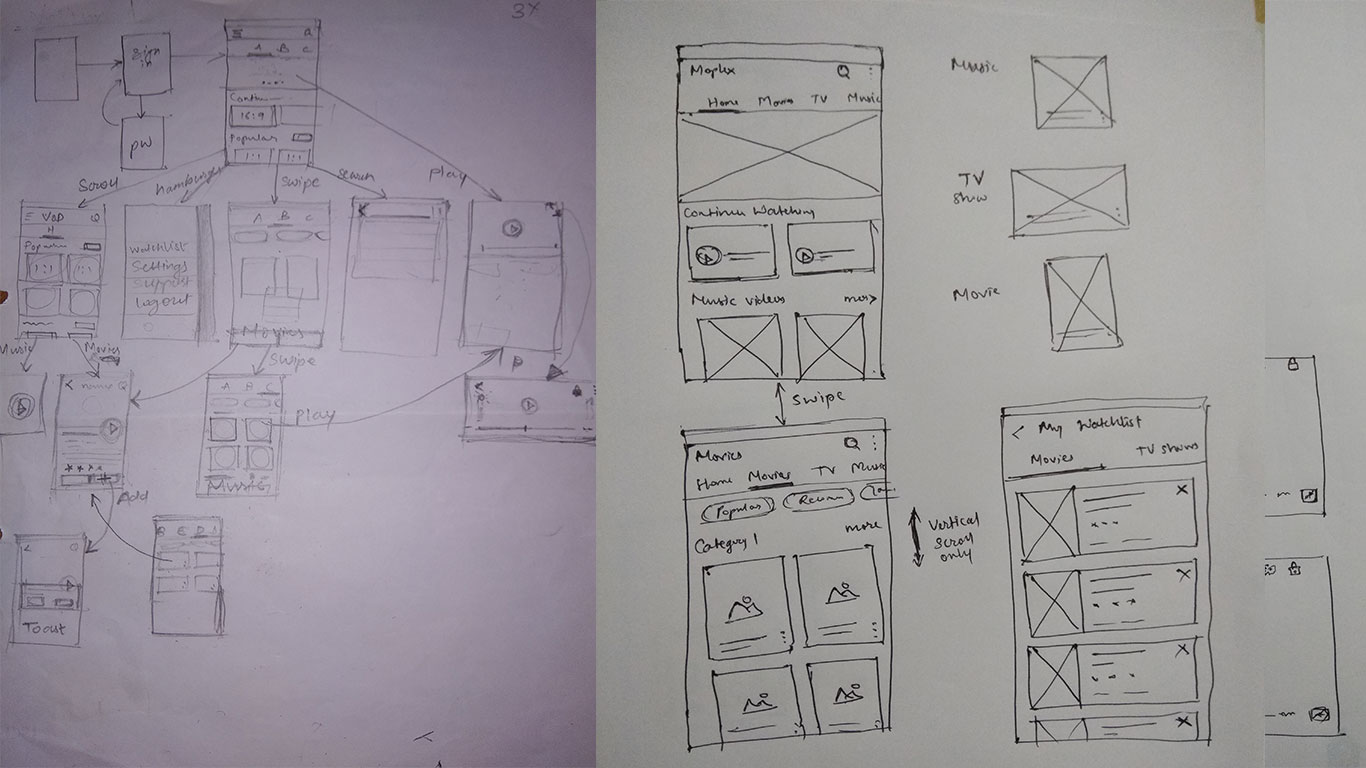 3x
sign
in
A B C
16:9
Popular
1:1 1:1
pw
Scroll
hamburger
swipe
search
play
VOD
H
1:1 1:1
watchlist
Settings
Support
logout
A B C
Movies
Music
Movies
swipe
name
A B C
play
P
Add
Toast
Moplex
Home Movies TV Music
Continue Watching
Music videos more>
swipe
Movies
Home Movies TV Music
Popular
Category 1 more
Vertical
scroll
only
Music
TV
show
Movie
< My Watchlist
Movies TV shows